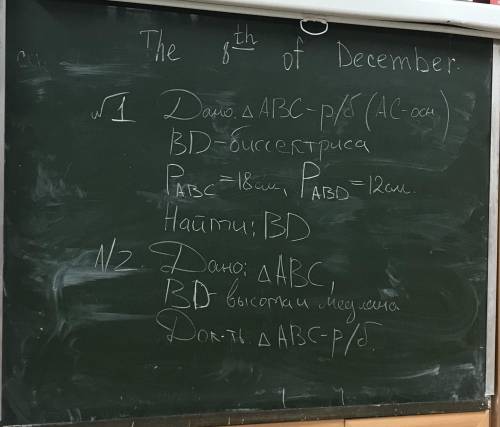 The 8th of December.
√1 Дано: △ABC-р/б (AC-осн)
BD-биссектриса
P_ABC=18см, P_ABD=12см.
Найти: BD
N2 Дано: △ABC,
BD-высота и медиана
Док-ть: △ABC-р/б.